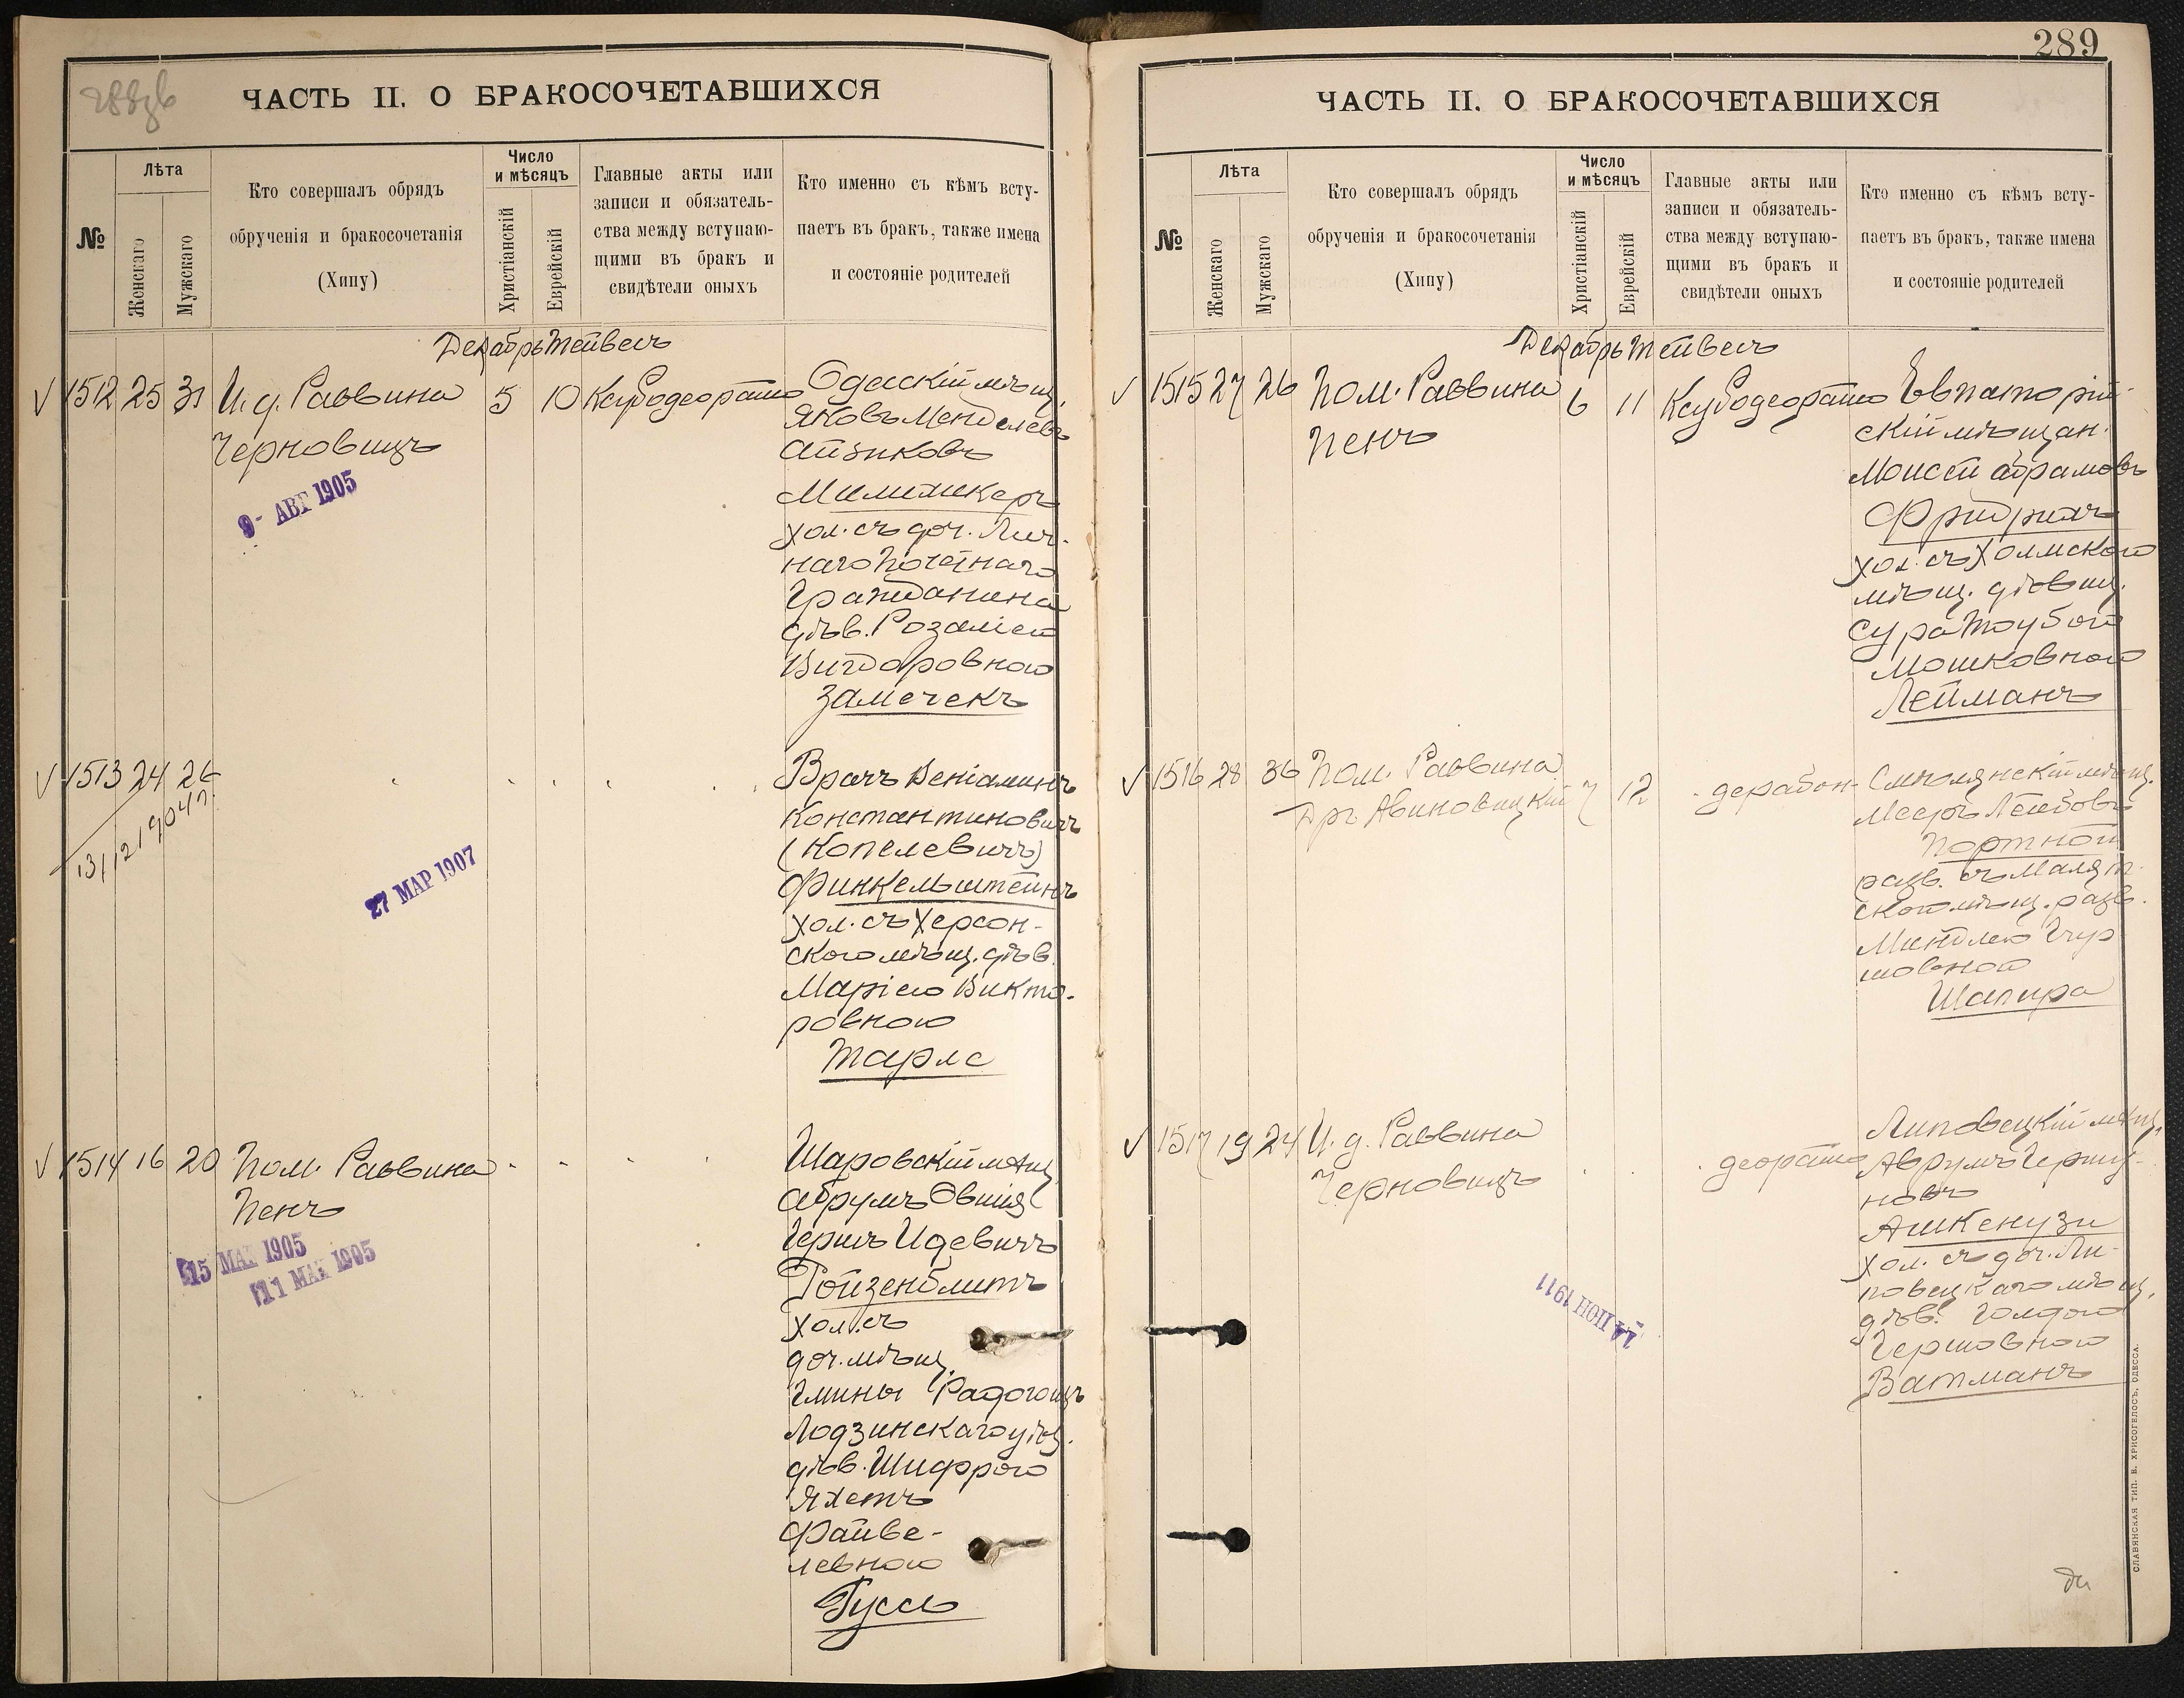 288об
ЧАСТЬ II. О БРАКОСОЧЕТАВШИХСЯ
№
Лѣта
Женскаго
Мужскаго
Кто совершалъ обрядъ
обрученія и бракосочетанія
(Хипу)
Число
и мѣсяцъ
Христіанскій
Еврейскій
Главные акты или
записи и обязатель-
ства между вступаю-
щими въ бракъ и
свидѣтели оныхъ
Кто именно съ кѣмъ всту-
паетъ въ бракъ, также имена
и состояніе родителей
Декабрь Тейвесъ
1512 25 31 И. д. Раввина 5 10 Ксубодеорайсо Одесскій мѣщ.
Черновицъ
Яковъ Менделевъ
Айзиковъ
Милимикеръ
хол. съ доч. Лич-
наго Почетнаго
Гражданина
дѣв. Розаліею
Вигдоровною
Замечекъ
9- АВГ 1905
1513 24 26 Врачъ Веніаминъ
13/12 1904 г.
Константиновичъ
(Копелевичъ)
Финкельштейнъ
хол. съ Херсон-
скою мѣщ. дѣв.
Маріею Викто-
ровною
Тарле
27 МАР 1907
1514 16 20 Пом. Раввина
Пенъ
Шаровскій мѣщ.
Абрумъ Овшія
Гершъ Идевичъ
Ройзенблитъ
хол. съ
доч. мѣщ.
Гмины Радогощъ
Лодзинскаго уѣз.
дѣв. Шифрою
Яхетъ
Файве-
левною
Гуссъ
15 МАЯ 1905
11 МАЯ 1905
289
ЧАСТЬ II. О БРАКОСОЧЕТАВШИХСЯ
№
Лѣта
Женскаго
Мужскаго
Кто совершалъ обрядъ
обрученія и бракосочетанія
(Хипу)
Число
и мѣсяцъ
Христіанскій
Еврейскій
Главные акты или
записи и обязатель-
ства между вступаю-
щими въ бракъ и
свидѣтели оныхъ
Кто именно съ кѣмъ всту-
паетъ въ бракъ, также имена
и состояніе родителей
Декабрь Тейвесъ
1515 27 26 Пом. Раввина 6 11 Ксубодеорайсо Евпаторій-
Пенъ
скій мѣщан.
Моисей Абрамовъ
Фридрихъ
хол. съ Холмскою
мѣщ. дѣвиц.
Сура Таубою
Мошковною
Лейманъ
1516 28 36 Пом. Раввина 7 12 дерабон- Смолянскій мѣщ.
Др. Авиновицкій
Мееръ Лейбовъ
Портной
разв. съ Малят-
скою мѣщ. разв.
Миндлею Гир
шовной
Шапира
1517 19 24 И. д. Раввина деорайсо Липовецкій мѣщ.
Черновицъ
Аврумъ Герш-
новъ
Ашкенузи
хол. съ доч. Ли-
повецкаго мѣщ.
дѣв. Голдою
Гершовною
Ватманъ
ІЮН 1911
СЛАВЯНСКАЯ ТИП. Е. ХРИСОГЕЛОСЪ, ОДЕССА.